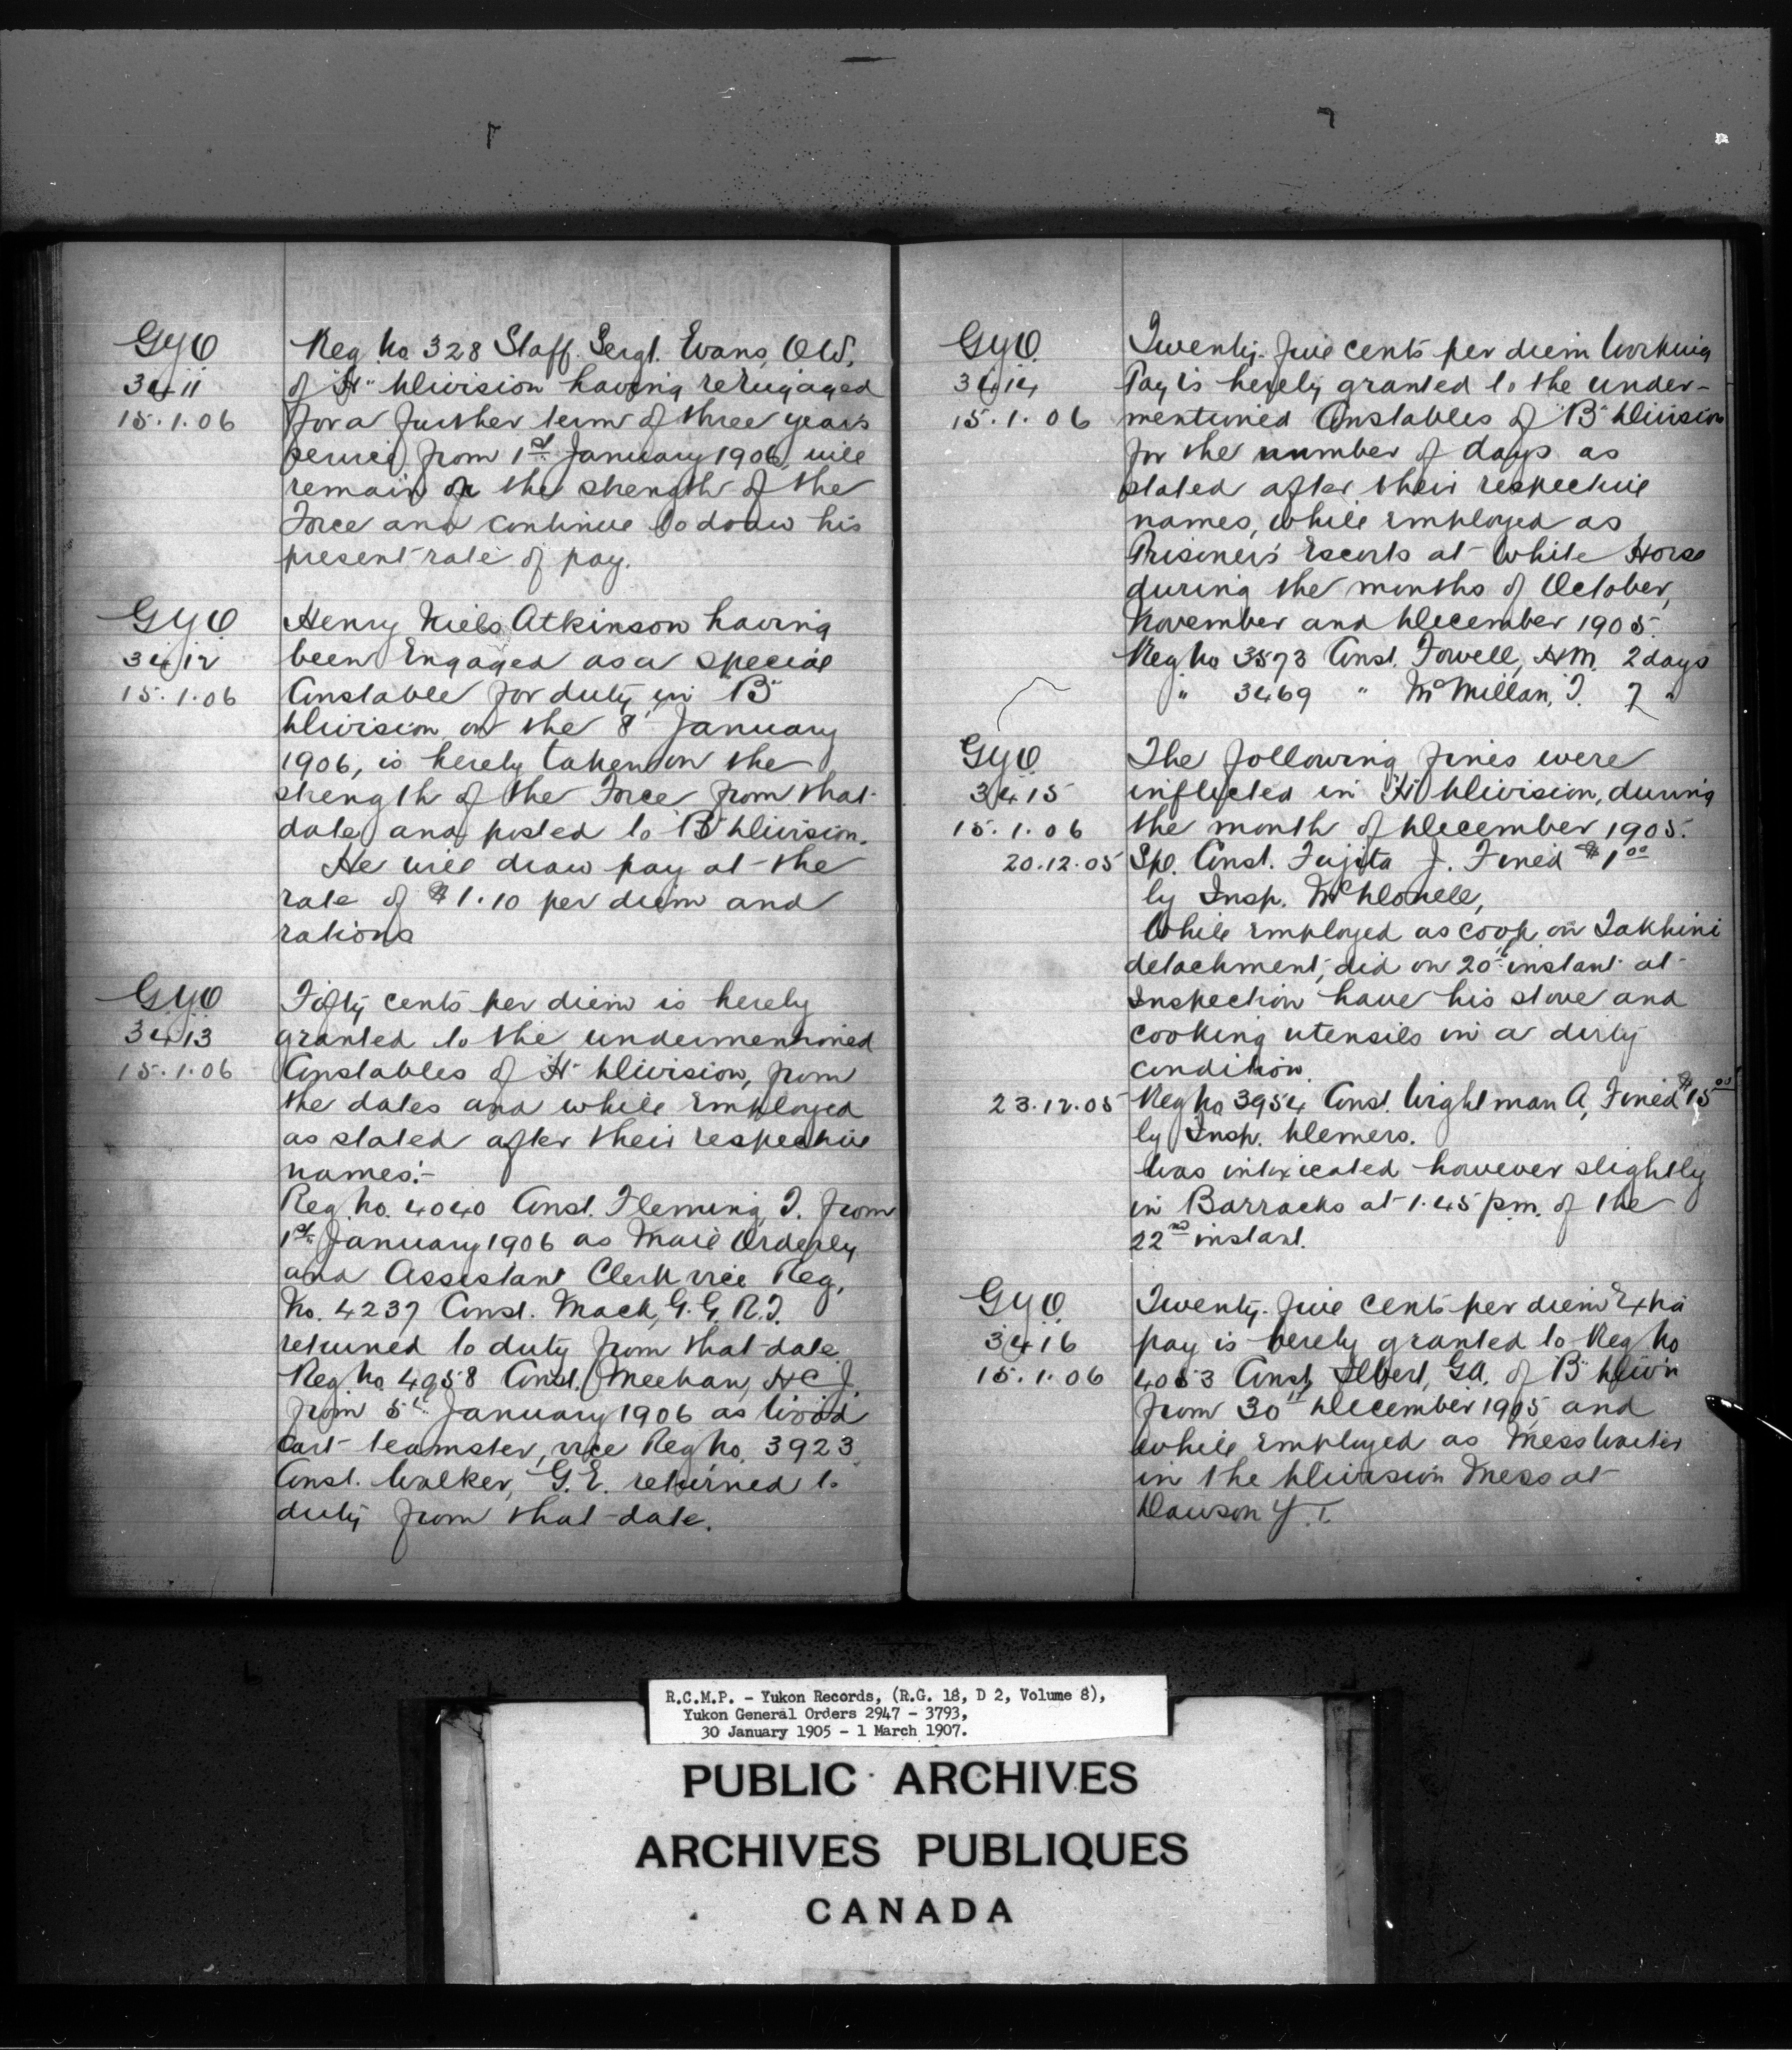 G.Y.O
3411
15.1.06
Reg. No. 328 Staff. Sergt. Evans, O.W,
of "H" Division having reengaged
for a further term of three years
service from 1st January 1906, will
remain on the strength of the
Force and continue to draw his
present rate of pay.
G.Y.O
3412
15.1.06
Henry Niels Atkinson having
been Engaged as a special
Constable for duty in "B"
Division on the 8" January
1906, is hereby taken on the
strength of the Force from that
date and posted to "B" Division.
He will draw pay at the
rate of $1.10 per diem and
rations
G.Y.O
3413
15.1.06
Fifty cents per diem is hereby
granted to the undermentioned
Constables of "H" Division, from
the dates and while Employed
as stated after their respective
names:-
Reg. No. 4040 Const. Fleming, T. from
1st January 1906 as Mail Orderly
and Assistant Clerk vice Reg.
No. 4237 Const. Mack, G.G.R.T.
returned to duty from that date
Reg. No. 4958 Const. Meehan, H C J.
from 5th January 1906 as Wood
Cart teamster, vice Reg No. 3923
Const. Walker, G.E. returned to
duty from that date.
G.Y.O.
3414
15.1.06
Twenty-five cents per diem Working
Pay is hereby granted to the under-
mentioned Constables of "B" Division
for the number of days as
stated after their respective
names, while Employed as
Prisoners Escorts at White Horse
during the months of October,
November and December 1905.
Reg No 3573 Const. Fowell, H.M. 2 days
" 3469 " McMillan, T. 7 "
G.Y.O.
3415
15.1.06
The following fines were
inflicted in "H" Division, during
the month of December 1905.
20.12.05 Spl. Const. Fujita J. Fined $1.00
by Insp. McDonell,
While employed as cook on Takhini
detachment, did on 20th instant at
Inspection have his stove and
cooking utensils in a dirty
condition.
23.12.05 Reg No 3954 Const. Wightman A, Fined $15.00
by Insp. Demers.
Was intoxicated however slightly
in Barracks at 1.45 p.m. of the
22nd instant.
G.Y.O.
3416
15.1.06
Twenty-five cents per diem Extra
pay is hereby granted to Reg No
4053 Const, Ilbert, G.A. of "B" Divn
from 30th December 1905 and
while Employed as Mess Waiter
in the Division Mess at
Dawson Y.T.
R.C.M.P. - Yukon Records, (R.G. 18, D 2, Volume 8),
Yukon General Orders 2947 - 3793,
30 January 1905 - 1 March 1907.
PUBLIC ARCHIVES
ARCHIVES PUBLIQUES
CANADA